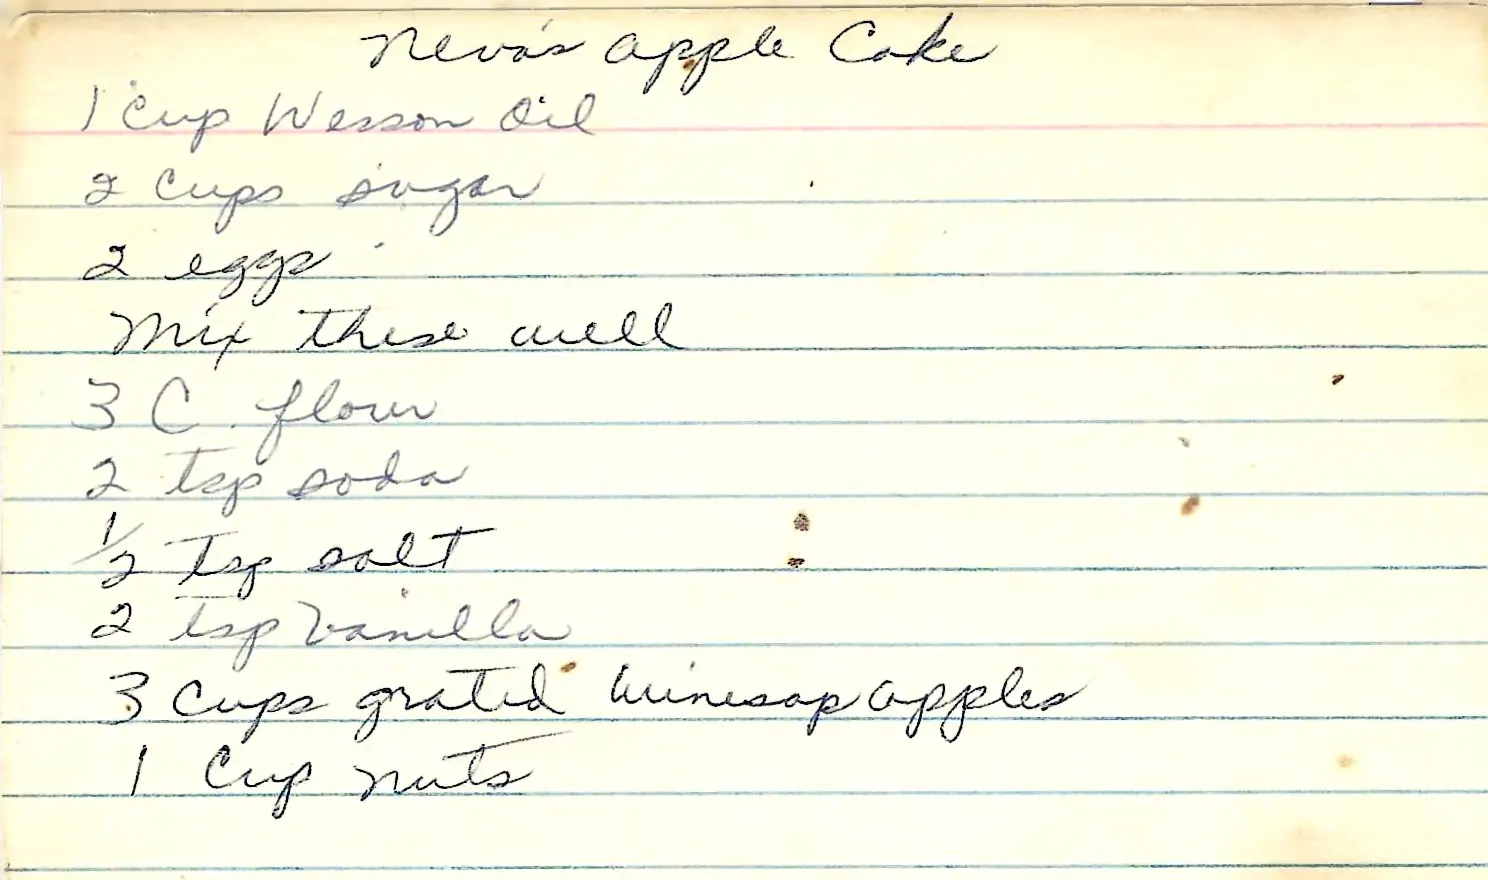 Neva's apple Cake
1 Cup Wesson Oil
2 Cups sugar
2 eggs
Mix these well
3 C. flour
2 tsp soda
1/2 tsp salt
2 tsp vanilla
3 Cups grated winesap apples
1 Cup nuts